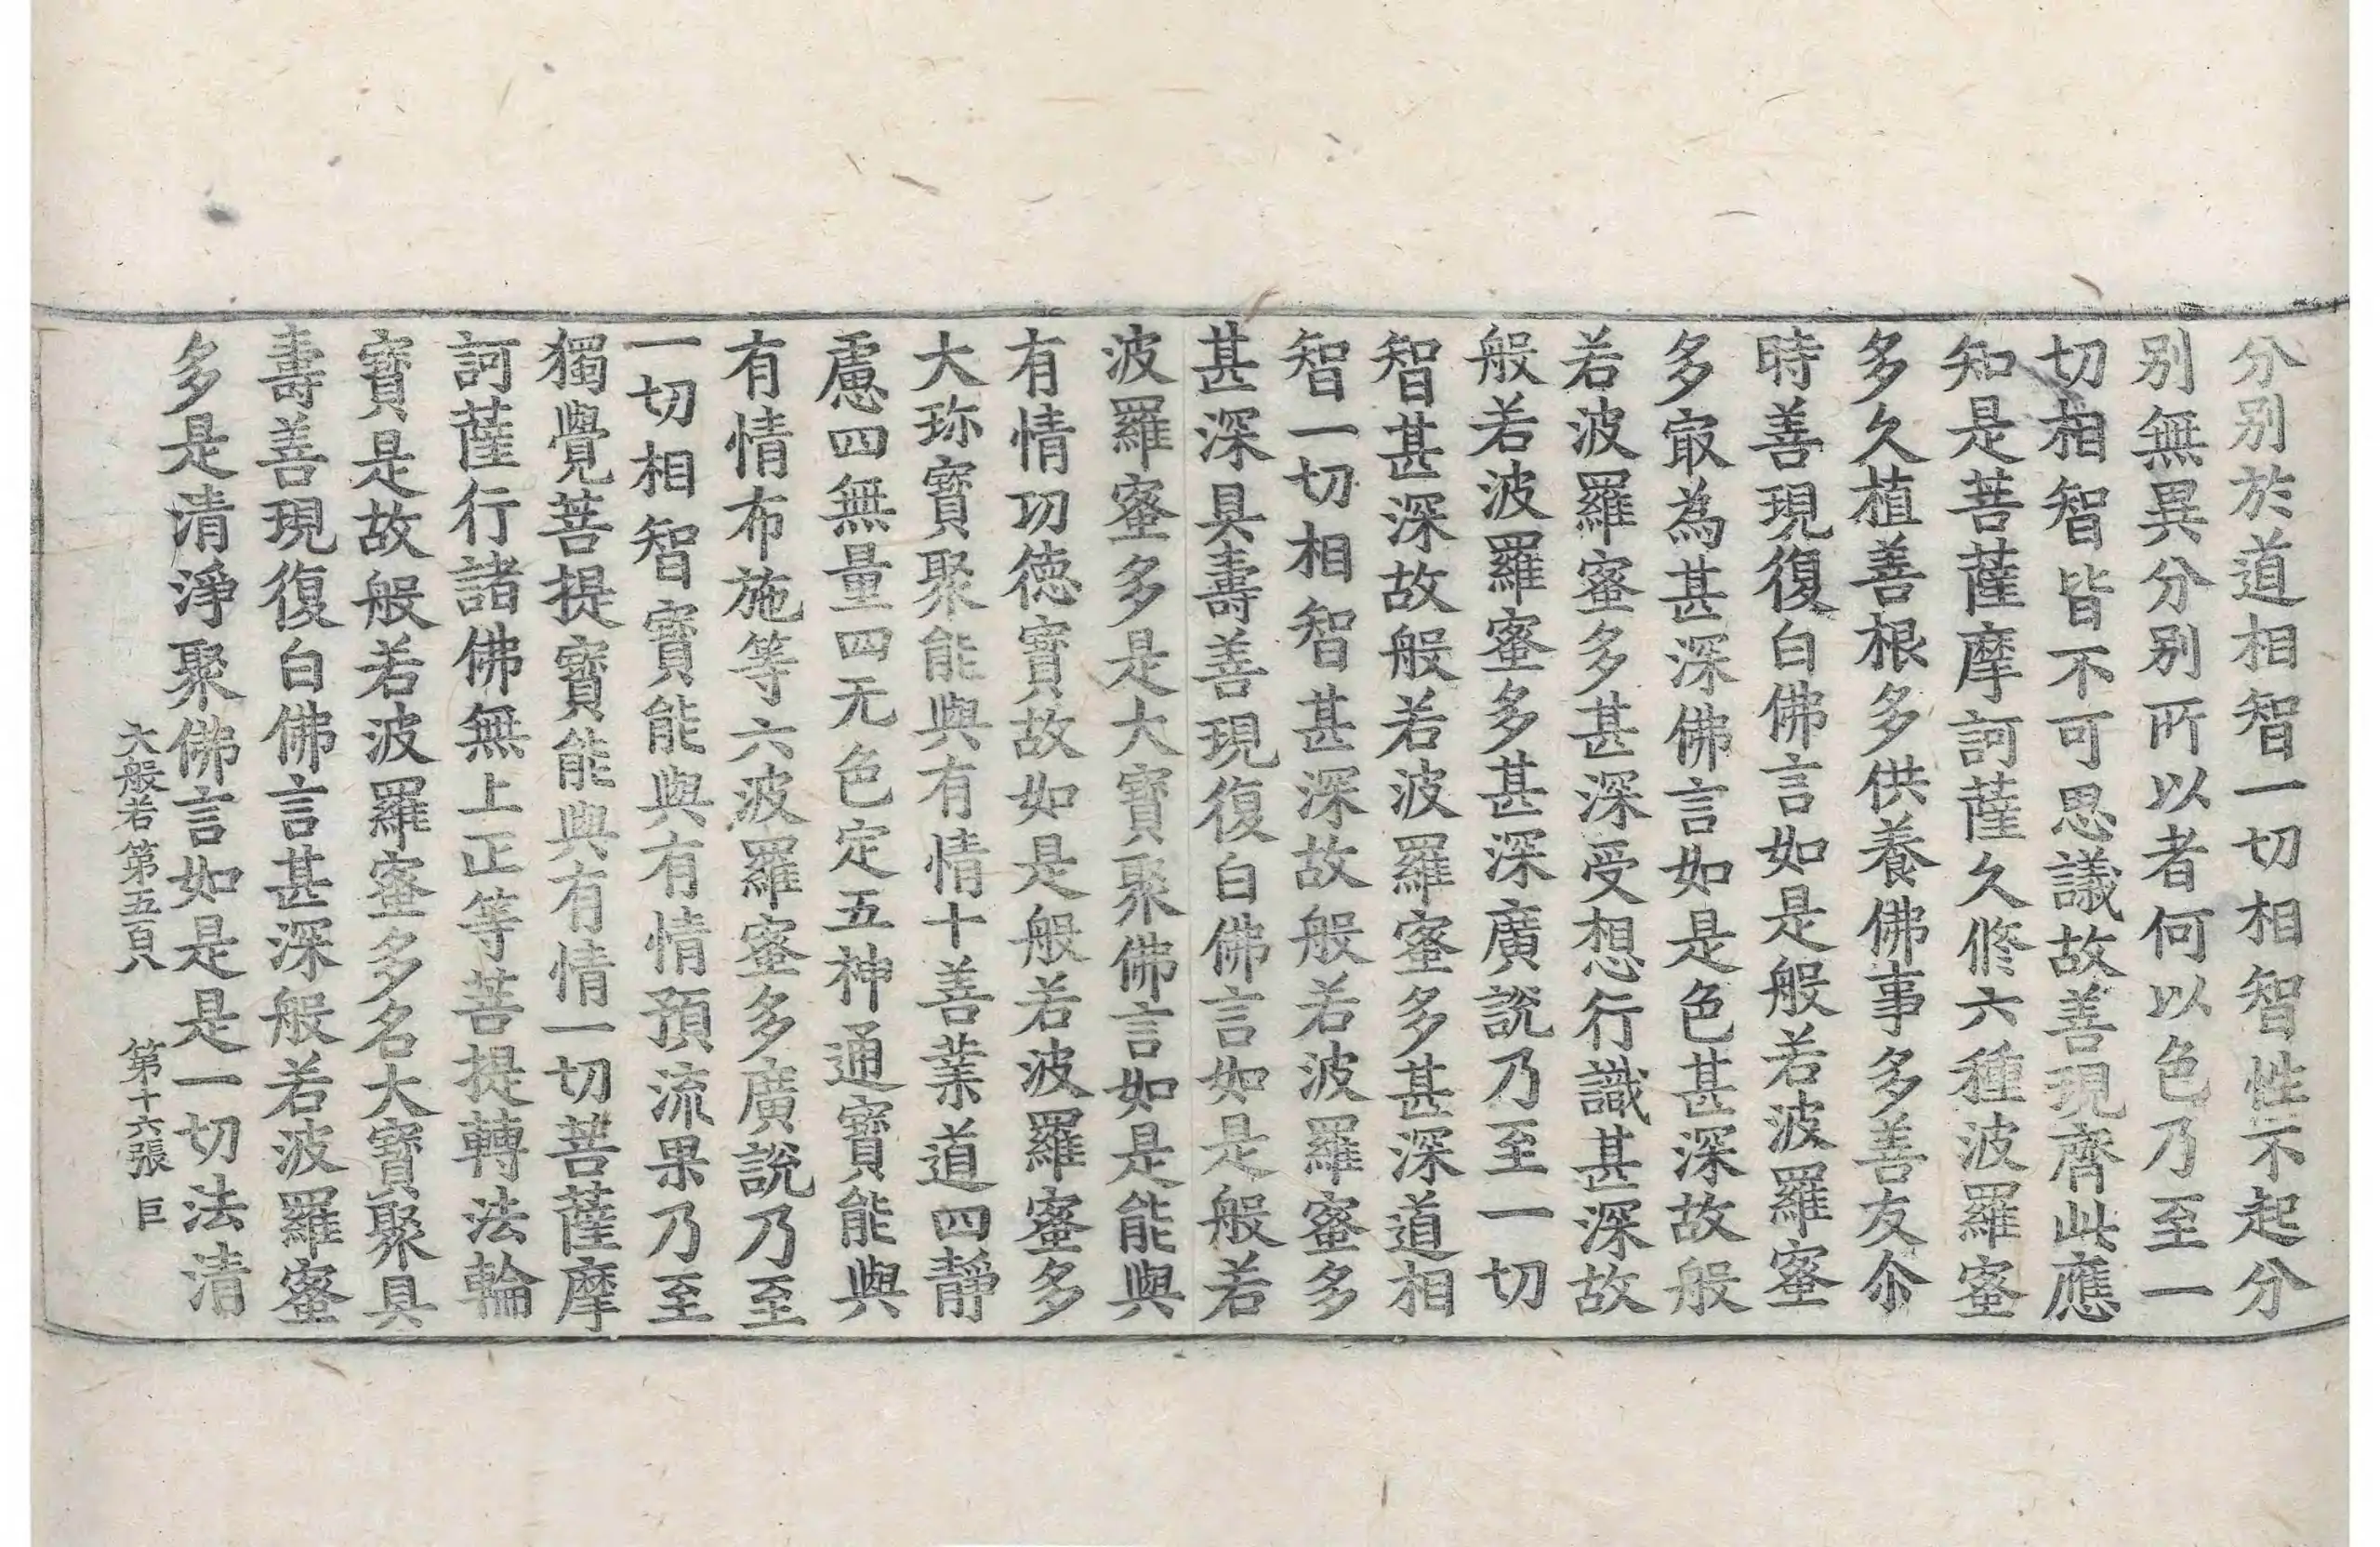 分别於道相智一切相智性不起分
别無異分别所以者何以色乃至一
切相智皆不可思議故善現齊此應
知是菩薩摩訶薩久修六種波羅蜜
多久植善根多供養佛事多善友尒
時善現復白佛言如是般若波羅蜜
多㝡為甚深佛言如是色甚深故般
若波羅蜜多甚深受想行識甚深故
般若波羅蜜多甚深廣說乃至一切
智甚深故般若波羅蜜多甚深道相
智一切相智甚深故般若波羅蜜多
甚深具壽善現復白佛言如是般若
波羅蜜多是大寶聚佛言如是能與
有情功德寶故如是般若波羅蜜多
大珎寶聚能與有情十善業道四靜
慮四無量四无色定五神通寶能與
有情布施等六波羅蜜多廣說乃至
一切相智寶能與有情預流果乃至
獨覺菩提寶能與有情一切菩薩摩
訶薩行諸佛無上正等菩提轉法輪
寶是故般若波羅蜜多名大寶聚具
壽善現復白佛言甚深般若波羅蜜
多是清淨聚佛言如是是一切法清
大般若第五百 第十六張 巨